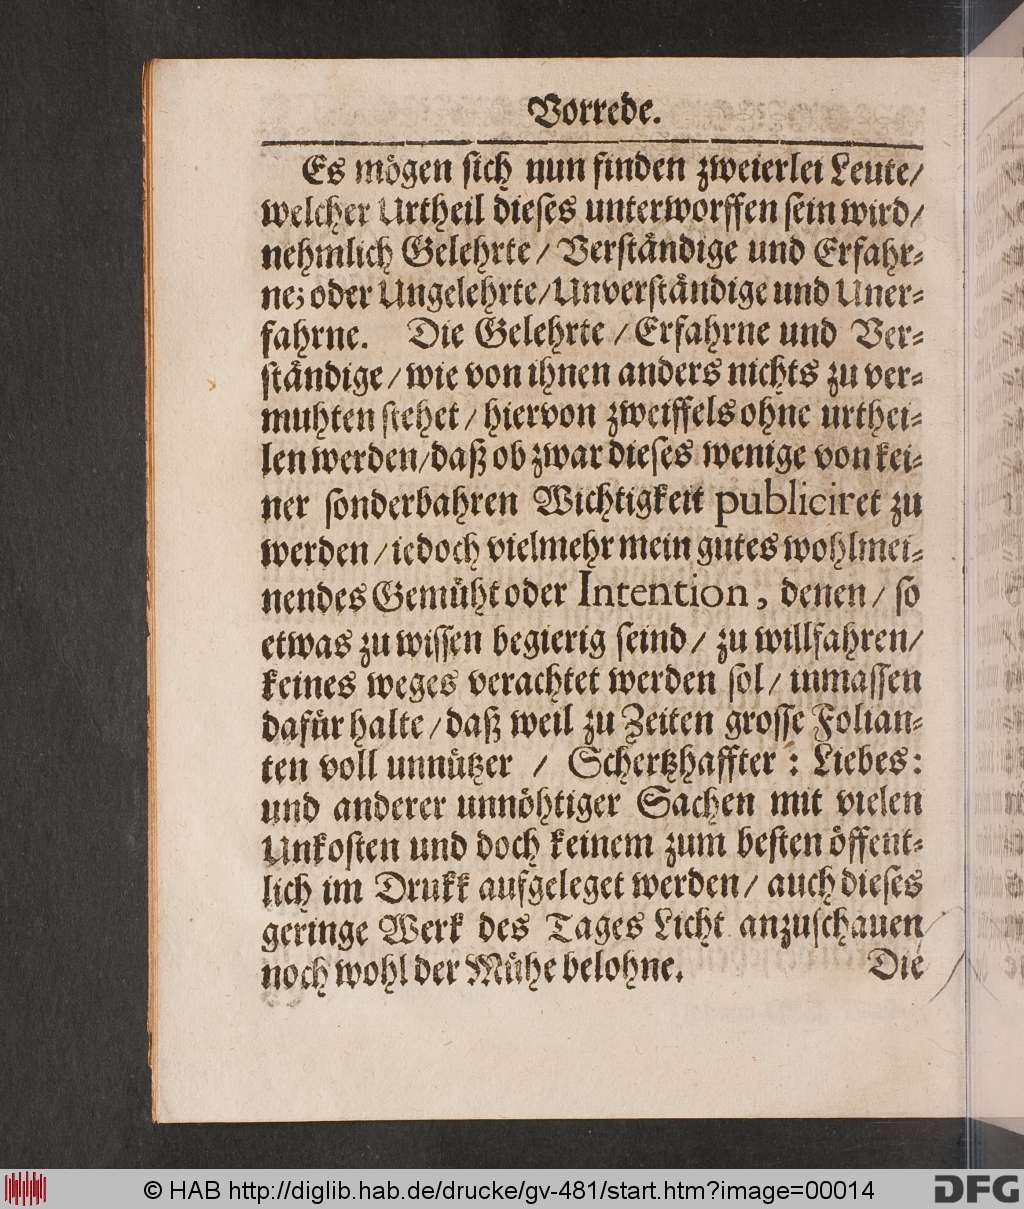 Vorrede.
Es mögen sich nun finden zweierlei Leute/
welcher Urtheil dieses unterworffen sein wird/
nehmlich Gelehrte/ Verständige und Erfahr-
ne; oder Ungelehrte/ Unverständige und Uner-
fahrne. Die Gelehrte/ Erfahrne und Ver-
ständige/ wie von ihnen anders nichts zu ver-
muhten stehet/ hiervon zweiffels ohne urthei-
len werden/ daß ob zwar dieses wenige von kei-
ner sonderbahren Wichtigkeit publiciret zu
werden/ iedoch vielmehr mein gutes wohlmei-
nendes Gemüht oder Intention, denen/ so
etwas zu wissen begierig seind/ zu willfahren/
keines weges verachtet werden sol/ inmassen
dafür halte/ daß weil zu Zeiten grosse Folian-
ten voll unnützer / Schertzhaffter : Liebes:
und anderer unnöhtiger Sachen mit vielen
Unkosten und doch keinem zum besten öffent-
lich im Drukk aufgeleget werden/ auch dieses
geringe Werk des Tages Licht anzuschauen
noch wohl der Mühe belohne. Die
© HAB http://diglib.hab.de/drucke/gv-481/start.htm?image=00014
DFG